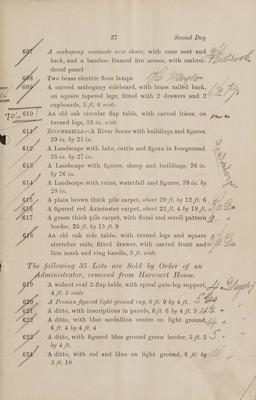 37 Second Day
607 A mahogany commode arm chair, with cane seat and
back, and a bamboo framed fire screen, with embroi-
dered panel
608 Two brass electric floor lamps
609 A carved mahogany sideboard, with brass railed back,
on square tapered legs, fitted with 2 drawers and 2
cupboards, 5 ft. 6 wide
70/- 610 An old oak circular flap table, with carved frieze, on
turned legs, 32 in. wide
611 ZUCCHERELLI—A River Scene with buildings and figures,
29 in. by 21 in.
612 A Landscape with lake, cattle and figure in foreground,
35 in. by 27 in.
613 A Landscape with figures, sheep and buildings, 36 in.
by 26 in.
614 A Landscape with ruins, waterfall and figures, 39 in. by
28 in.
615 A plain brown thick pile carpet, about 20 ft. by 12 ft. 6
616 A figured red Axminster carpet, about 22 ft. 4 by 19 ft.
617 A green thick pile carpet, with floral and scroll pattern
border, 26 ft. by 15 ft. 9
618 An old oak side table, with turned legs and square
stretcher rails, fitted drawer, with carved front and
lion mask and ring handle, 3 ft. wide
The following 35 Lots are Sold by Order of an
Administrator, removed from Harcourt House.
619 A walnut oval 2-flap table, with spiral gate-leg support,
4 ft. 3 wide
620 A Persian figured light ground rug, 9 ft. 9 by 4 ft.
621 A ditto, with inscriptions in panels, 6 ft. 6 by 4 ft. 3
622 A ditto, with blue medallion centre on light ground,
6 ft. 4 by 4 ft. 4
623 A ditto, with figured blue ground green border, 5 ft. 3
by 4 ft.
624 A ditto, with red and blue on light ground, 6 ft. by
3 ft. 10